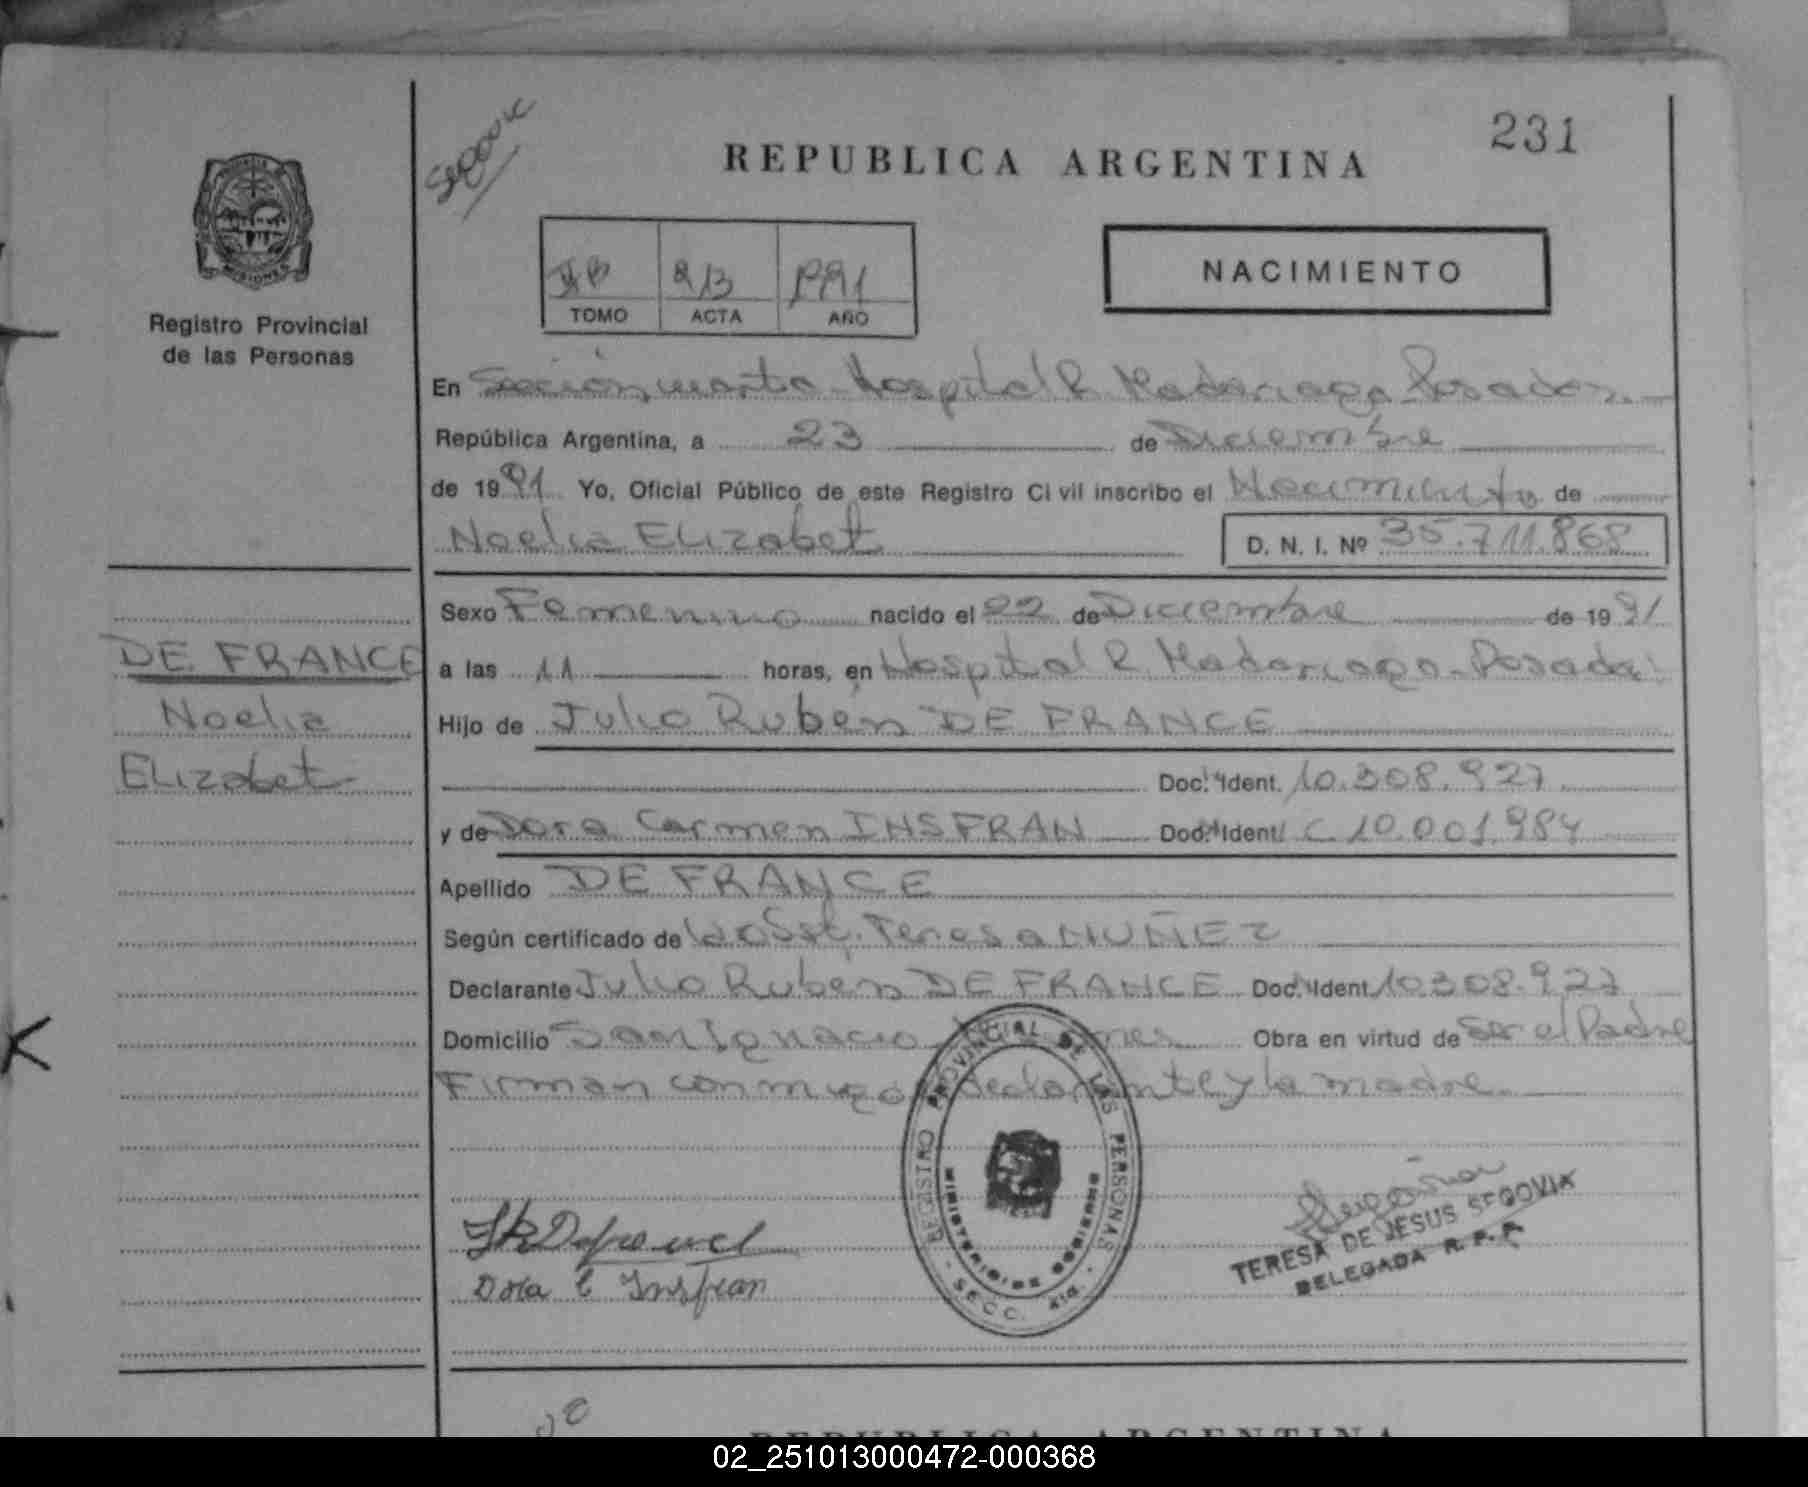 231
REPUBLICA ARGENTINA
NACIMIENTO
MISIONES
Registro Provincial
de las Personas
TOMO ACTA AÑO
1991
En Sección cuarta Hospital R. Madariaga Posadas.
República Argentina, a 23 de Diciembre
de 1991 Yo, Oficial Público de este Registro Civil inscribo el Nacimiento de
Noelia Elizabet D. N. I. Nº 35.711.868
Sexo Femenino nacido el 22 de Diciembre de 1991
DE FRANCE
Noelia
Elizabet
a las 11 horas, en Hospital R. Madariaga - Posadas
Hijo de Julio Rubén DE FRANCE
Doc. Ident. 10.308.927
y de Dora Carmen INSFRAN Doc. Ident. C 10.001.984
Apellido DE FRANCE
Según certificado de la Obst. Teresa NUÑEZ
Declarante Julio Rubén DE FRANCE Doc. Ident. 10.308.927
Domicilio San Ignacio Obra en virtud de Ser el Padre
Firman conmigo declarante y la madre.
REGISTRO PROVINCIAL DE LAS PERSONAS
MINISTERIO DE GOBIERNO
SECC.
Dora C Insfran
TERESA DE JESUS SEGOVIA
DELEGADA R. P. P.
REPUBLICA ARGENTINA
02_251013000472-000368